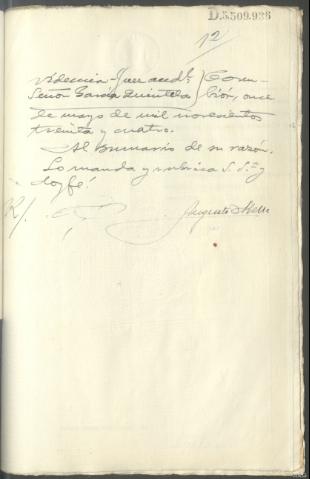 D.5.509.936
12
videncia - Juez acctl.
Señor García Quintela } Corcu-
bión, once
de mayo de mil novecientos
treinta y cuatro.
Al Sumario de su razón.
Lo manda y rubrica S. Sª y
doy fé.
R/.